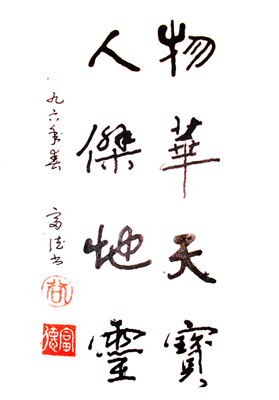 物華天寶
人傑地靈
九六年春
富德书
富德